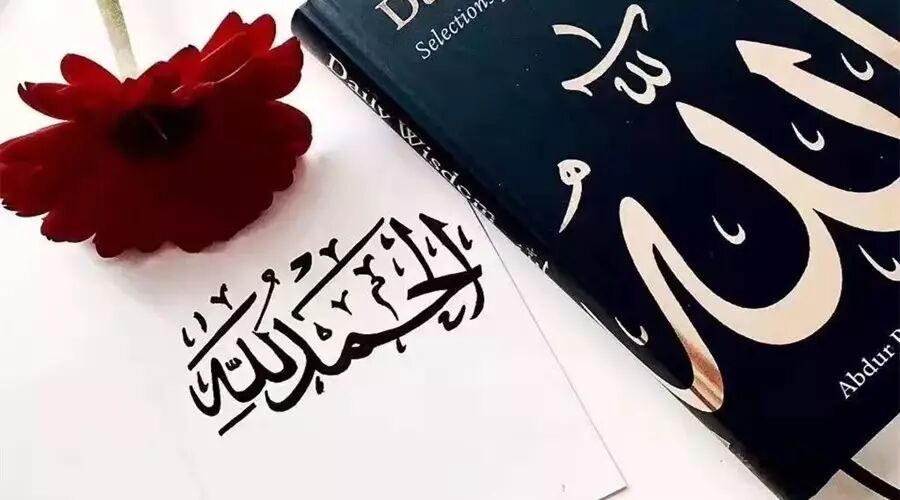 Selections
Daily Wisdom
الله
Abdur
الْحَمْدُ لِلَّهِ